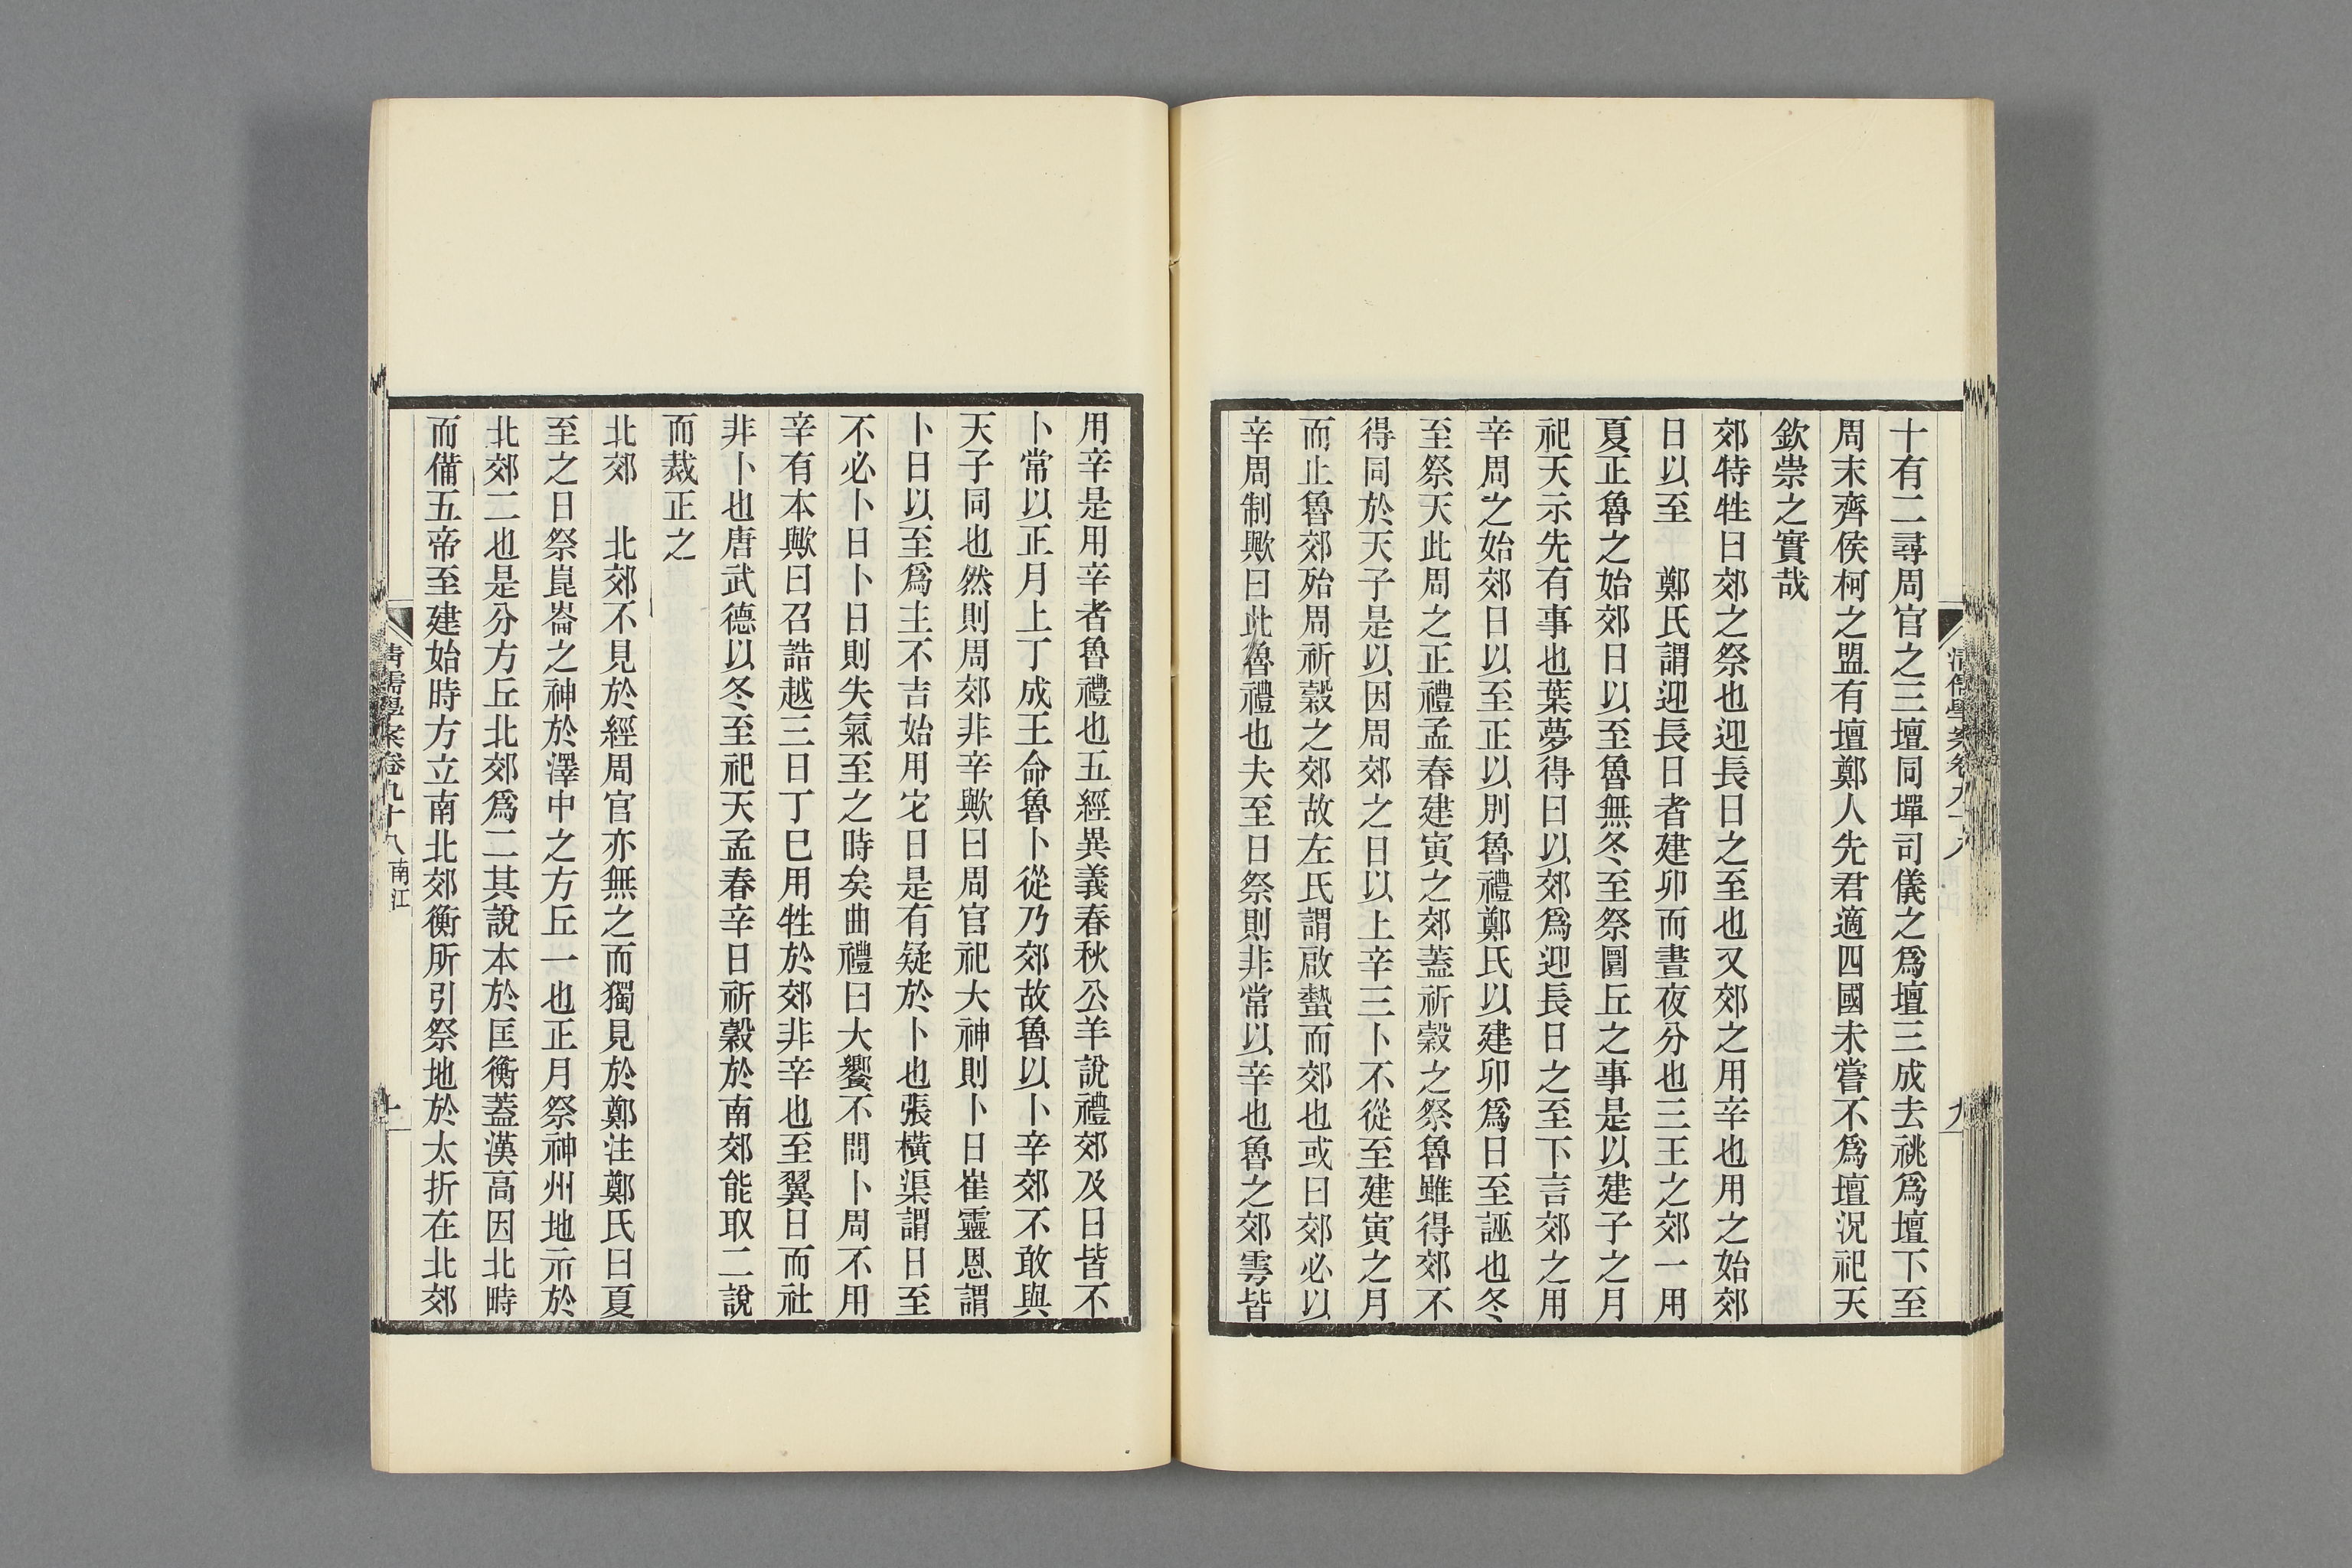 十有二尋周官之三壇同墠司儀之爲壇三成去祧爲壇下至
周末齊侯柯之盟有壇鄭人先君適四國未嘗不爲壇況祀天
欽崇之實哉
郊特牲曰郊之祭也迎長日之至也又郊之用辛也用之始郊
日以至　鄭氏謂迎長日者建卯而晝夜分也三王之郊一用
夏正魯之始郊日以至魯無冬至祭圜丘之事是以建子之月
祀天示先有事也葉夢得曰以郊爲迎長日之至下言郊之用
辛周之始郊日以至正以別魯禮鄭氏以建卯爲日至誣也冬
至祭天此周之正禮孟春建寅之郊蓋祈穀之祭魯雖得郊不
得同於天子是以因周郊之日以上辛三卜不從至建寅之月
而止魯郊殆周祈穀之郊故左氏謂啟蟄而郊也或曰郊必以
辛周制歟曰此魯禮也夫至日祭則非常以辛也魯之郊雩皆
用辛是用辛者魯禮也五經異義春秋公羊說禮郊及日皆不
卜常以正月上丁成王命魯卜從乃郊故魯以卜辛郊不敢與
天子同也然則周郊非辛歟曰周官祀大神則卜日崔靈恩謂
卜日以至爲主不吉始用它日是有疑於卜也張橫渠謂日至
不必卜日卜日則失氣至之時矣曲禮曰大饗不問卜周不用
辛有本歟曰召誥越三日丁巳用牲於郊非辛也至翼日而社
非卜也唐武德以冬至祀天孟春辛日祈穀於南郊能取二說
而裁正之
北郊　北郊不見於經周官亦無之而獨見於鄭注鄭氏曰夏
至之日祭崑崙之神於澤中之方丘一也正月祭神州地示於
北郊二也是分方丘北郊爲二其說本於匡衡蓋漢高因北畤
而備五帝至建始時方立南北郊衡所引祭地於太折在北郊
清儒學案卷九十八 南江